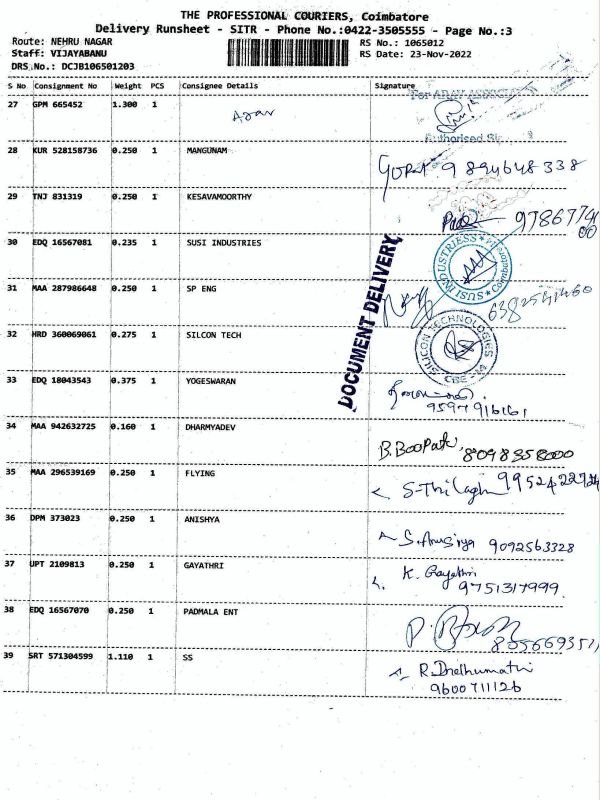 THE PROFESSIONAL COURIERS, Coimbatore
Delivery Runsheet - SITR - Phone No.:0422-3505555 - Page No.:3
Route: NEHRU NAGAR
RS No.: 1065012
Staff: VIJAYABANU
RS Date: 23-Nov-2022
DRS.No.: DCJB106501203
S No Consignment No Weight PCS Consignee Details Signature
27 GPM 665452 1.300 1
Authorised
28 KUR 528158736 0.250 1 MANGUNAM
9894648338
29 TNJ 831319 0.250 1 KESAVAMOORTHY
30 EDQ 16567081 0.235 1 SUSI INDUSTRIES
SUSI INDUSTRIESS Coimbatore
31 MAA 287986648 0.250 1 SP ENG
DOCUMENT DELIVERY
32 HRD 360069061 0.275 1 SILCON TECH
SILICON TECHNOLOGIES
CBE - 14
33 EDQ 18043543 0.375 1 YOGESWARAN
9597916161
34 MAA 942632725 0.160 1 DHARMYADEV
B. Boopati 8098358000
35 MAA 296539169 0.250 1 FLYING
36 DPM 373023 0.250 1 ANISHYA
9092563328
37 UPT 2109813 0.250 1 GAYATHRI
K. Gayathri
9751317999.
38 EDQ 16567070 0.250 1 PADMALA ENT
39 SRT 571304599 1.110 1 SS
9600711126